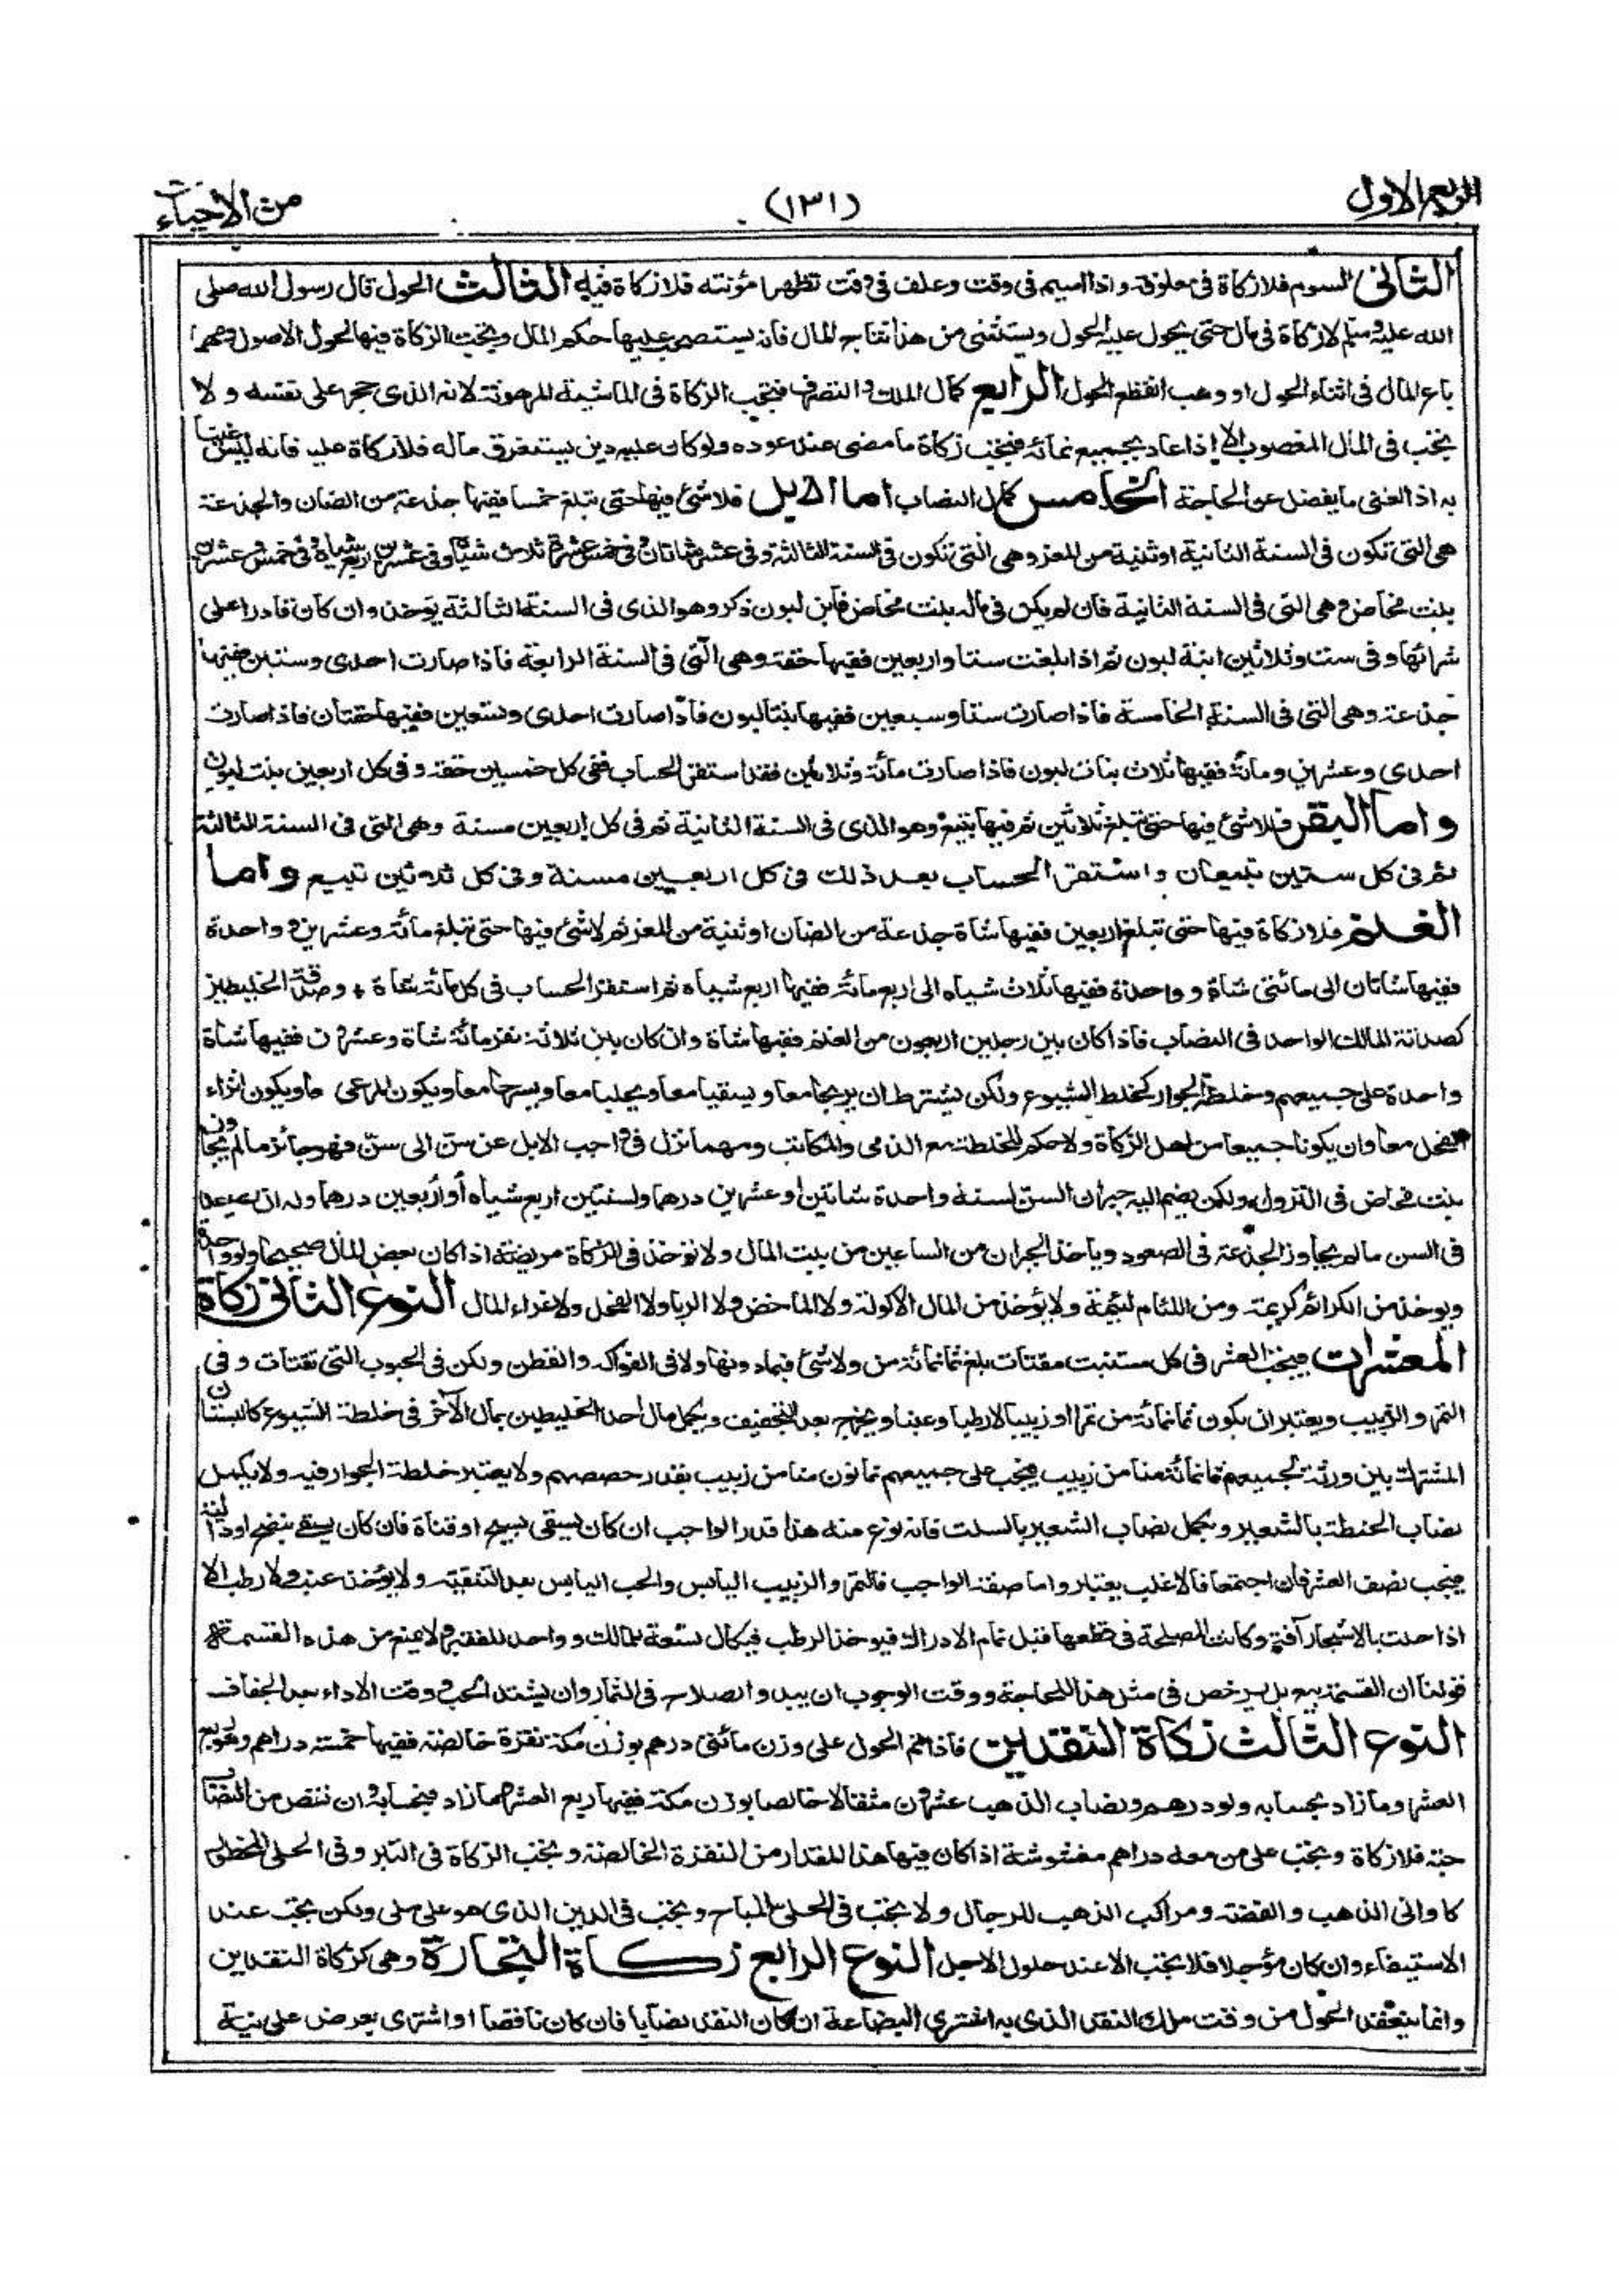 الربع الاول (١٣١) من الاحياء
الثانى السوم فلا زكاة فى معلوفة واذا اسيم فى وقت وعلف فى وقت تظهر مؤنته فلا زكاة فيه الثالث الحول قال رسول الله صلى
الله عليه وسلم لا زكاة فى مال حتى يحول عليه الحول ويستثنى من هذا نتاج المال فانه ينسحب عليها حكم المال ويجب الزكاة فيها لحول الاصول ومهما
باع المال فى اثناء الحول او وهب انقطع الحول الرابع كمال الملك والتصرف فتجب الزكاة فى الماشية المرهونة لانه الذى حجر على نفسه و لا
يجب فى المال المغصوب الا اذا عاد بجميع نمائه فيجب زكاة ما مضى عند عوده ولو كان عليه دين يستغرق ماله فلا زكاة عليه فانه ليس غنيا
به اذ الغنى ما يفضل عن الحاجة الخامس كمال النصاب اما الابل فلا شئ فيها حتى تبلغ خمسا ففيها جذعة من الضان والجذعة
هى التى تكون فى السنة الثانية او ثنية من المعز وهى التى تكون فى السنة الثالثة وفى عشر شاتان وفى خمس عشرة ثلاث شياه وفى عشرين اربع شياه وفى خمس وعشرين
بنت مخاض وهى التى فى السنة الثانية فان لم يكن فى ماله بنت مخاض فابن لبون ذكر وهو الذى فى السنة الثالثة يوخذ وان كان قادرا على
شرائها وفى ست وثلاثين ابنة لبون ثم اذا بلغت ستا واربعين ففيها حقة وهى التى فى السنة الرابعة فاذا صارت احدى وستين ففيها
جذعة وهى التى فى السنة الخامسة فاذا صارت ستا وسبعين ففيها بنتا لبون فاذا صارت احدى وتسعين ففيها حقتان فاذا صارت
احدى وعشرين ومائة ففيها ثلاث بنات لبون فاذا صارت مائة وثلاثين فقد استقر الحساب ففى كل خمسين حقة وفى كل اربعين بنت لبون
واما البقر فلا شئ فيها حتى تبلغ ثلاثين ثم فيها تبيع وهو الذى فى السنة الثانية ثم فى كل اربعين مسنة وهى التى فى السنة الثالثة
ثم فى كل ستين تبيعان واستقر الحساب بعد ذلك فى كل اربعين مسنة وفى كل ثلاثين تبيع واما
الغنم فلا زكاة فيها حتى تبلغ اربعين ففيها شاة جذعة من الضان او ثنية من المعز ثم لا شئ فيها حتى تبلغ مائة وعشرين و واحدة
ففيها شاتان الى مائتى شاة و واحدة ففيها ثلاث شياه الى اربع مائة ففيها اربع شياه ثم استقر الحساب فى كل مائة شاة وصدقة الخليطين
كصدقة المالك الواحد فى النصاب فاذا كان بين رجلين اربعون من الغنم ففيها شاة وان كان بين ثلاثة نفر مائة شاة وعشرون ففيها شاة
واحدة على جميعهم وخلطة الجوار كخلط الشيوع ولكن يشترط ان يريحا معا ويسقيا معا ويحلبا معا ويسرحا معا ويكون المرعى معا ويكون انزاء
الفحل معا وان يكونا جميعا من اهل الزكاة ولا حكم للخلطة مع الذمى والمكاتب ومهما نزل فى واجب الابل عن سن الى سن فهو جائز ما لم يجاوز
بنت مخاض فى النزول ولكن يضم اليه جبران السن لسنة واحدة شاتين او عشرين درهما ولسنتين اربع شياه أو أربعين درهما وله ان يصعد
فى السن ما لم يجاوز الجذعة فى الصعود وياخذ الجبران من الساعين من بيت المال ولا توخذ فى الزكاة مريضة اذا كان بعض المال صحيحا ولو واحدة
ويوخذ من الكرائم كريمة ومن اللئام لئيمة ولا يؤخذ من المال الاكولة ولا الماخض ولا الربا ولا الفحل ولا غراء المال النوع الثانى زكاة
المعشرات فيجب العشر فى كل مستنبت مقتات بلغ ثمانمائة من ولا شئ فيما دونها ولا فى الفواكه والقطن ولكن فى الحبوب التى تقتات وفى
التمر والزبيب ويعتبر ان يكون ثمانمائة من تمرا او زبيبا لا رطبا وعنبا ويخرج بعد التجفيف ويكمل مال احد الخليطين بمال الآخر فى خلطة الشيوع كالبستان
المشترك بين ورثة لجميعهم ثمانمائة منا من زبيب فيجب على جميعهم ثمانون منا من زبيب بقدر حصصهم ولا يعتبر خلطة الجوار فيه ولا يكمل
نصاب الحنطة بالشعير ويكمل نصاب الشعير بالسلت فانه نوع منه هذا قدر الواجب ان كان يسقى بسيح او قناة فان كان يسقى بنضح او دالية
فيجب نصف العشر فان اجتمعا فالاغلب يعتبر واما صفة الواجب فالتمر والزبيب اليابس والحب اليابس بعد التنقية ولا يؤخذ عنب ولا رطب الا
اذا حلت بالاشجار آفة وكانت المصلحة فى قطعها قبل تمام الادراك فيوخذ الرطب فيكال تسعة للمالك و واحد للفقير ولا يمنع من هذه القسمة
قولنا ان القسمة بيع بل يرخص فى مثل هذا للحاجة ووقت الوجوب ان يبدو الصلاح فى الثمار وان يشتد الحب ووقت الاداء بعد الجفاف
النوع الثالث زكاة النقدين فاذا تم الحول على وزن مائتى درهم بوزن مكة نقرة خالصة ففيها خمسة دراهم وهو ربع
العشر وما زاد بحسابه ولو درهم ونصاب الذهب عشرون مثقالا خالصا بوزن مكة ففيها ربع العشر فما زاد فبحسابه وان نقص من النصاب
حبة فلا زكاة ويجب على من معه دراهم مغشوشة اذا كان فيها هذا المقدار من النقرة الخالصة ويجب الزكاة فى التبر وفى الحلى المحظور
كاوانى الذهب والفضة ومراكب الذهب للرجال ولا يجب فى الحلى المباح ويجب فى الدين الذى هو على ملى ولكن يجب عند
الاستيفاء وان كان مؤجلا فلا يجب الا عند حلول الاجل النوع الرابع زكاة التجارة وهى كزكاة النقدين
وانما ينعقد الحول من وقت ملك النقد الذى به اشترى البضاعة ان كان النقد نصابا فان كان ناقصا او اشترى بعرض على نية